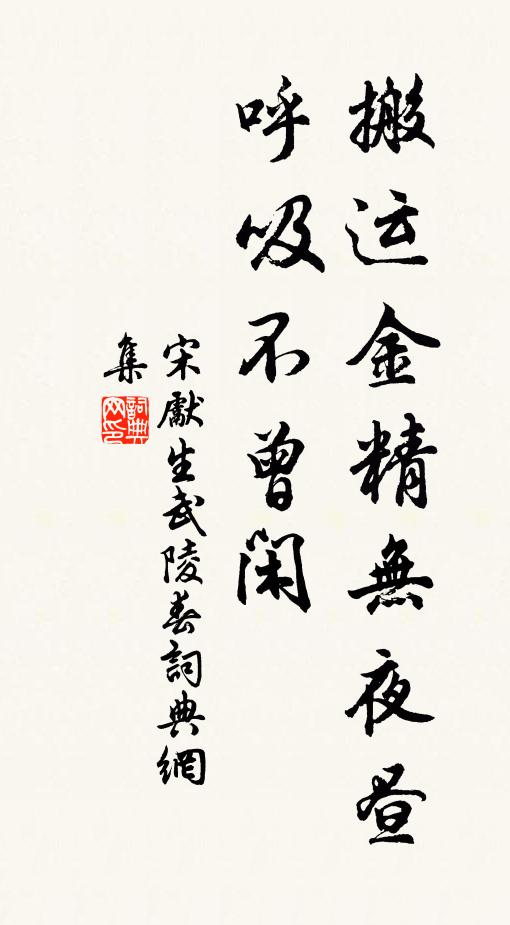 搬运金精無夜昼
呼吸不曾闲
宋獻生武陵春詞典網
集
詞典
网印